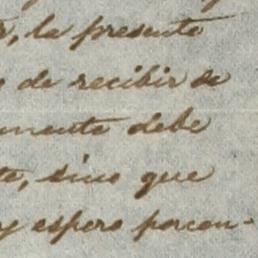 , la presente
de recibir de
mente debe
te, sino que
y espero porcon-